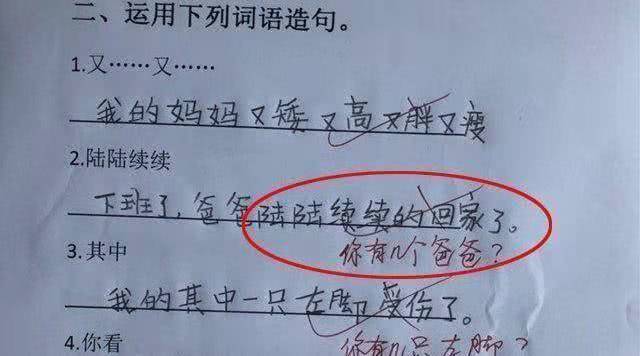 二、运用下列词语造句。
1.又……又……
我的妈妈又矮又高又胖又瘦
2.陆陆续续
下班了，爸爸陆陆续续的回家了。
你有几个爸爸？
3.其中
我的其中一只左脚受伤了。
4.你看
你有几只左脚？